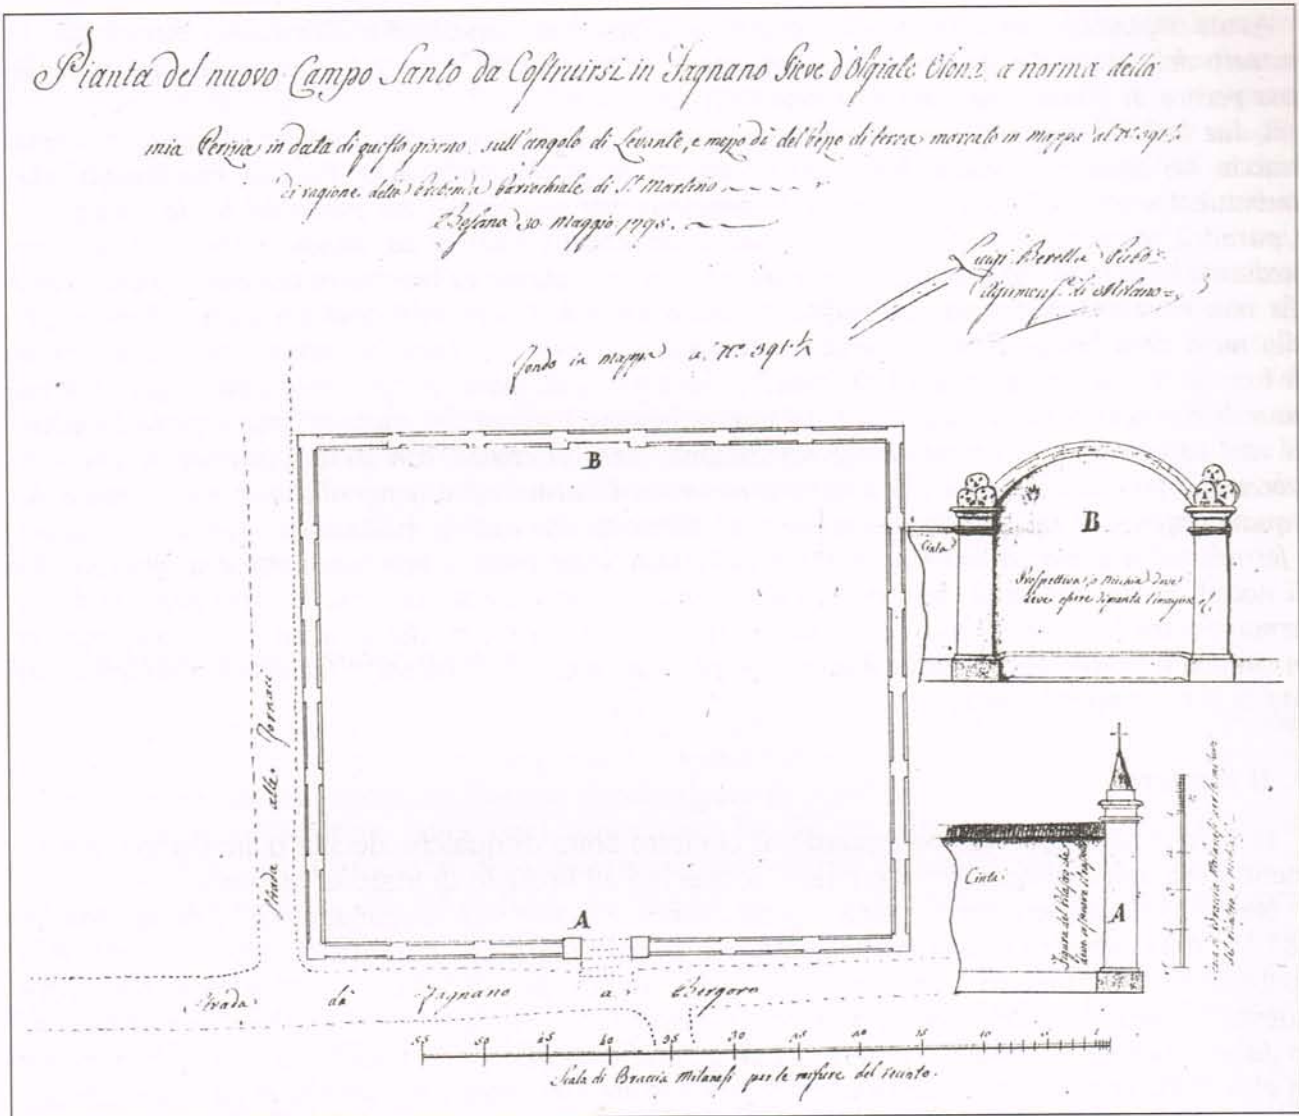 Pianta del nuovo Campo Santo da Costruirsi in Fagnano Pieve d'Olgiate Olona a norma della
mia Perizia in data di questo giorno sull'angolo di Levante, e mezzo dì del pezzo di terra marcato in mappa al N.º 391½
di ragione della Parrochiale di S. Martino
30 Maggio 1795.
Luigi Beretta Pub.º
Agrimens.e di Milano
fondo in mappa a N.º 391½
B
Cinta
B
Prospettiva, o Nichia dove
deve essere dipinta l'imagine
Strada alle Fornaci
Cinta
Figura del Pilastro che
deve
A
A
Scala di Braccia Milanesi per le misure
del
Strada da Fagnano a Bergoro
55 50 45 40 35 30 25 20 15 10 5 1
Scala di Braccia Milanesi per le misure del recinto.